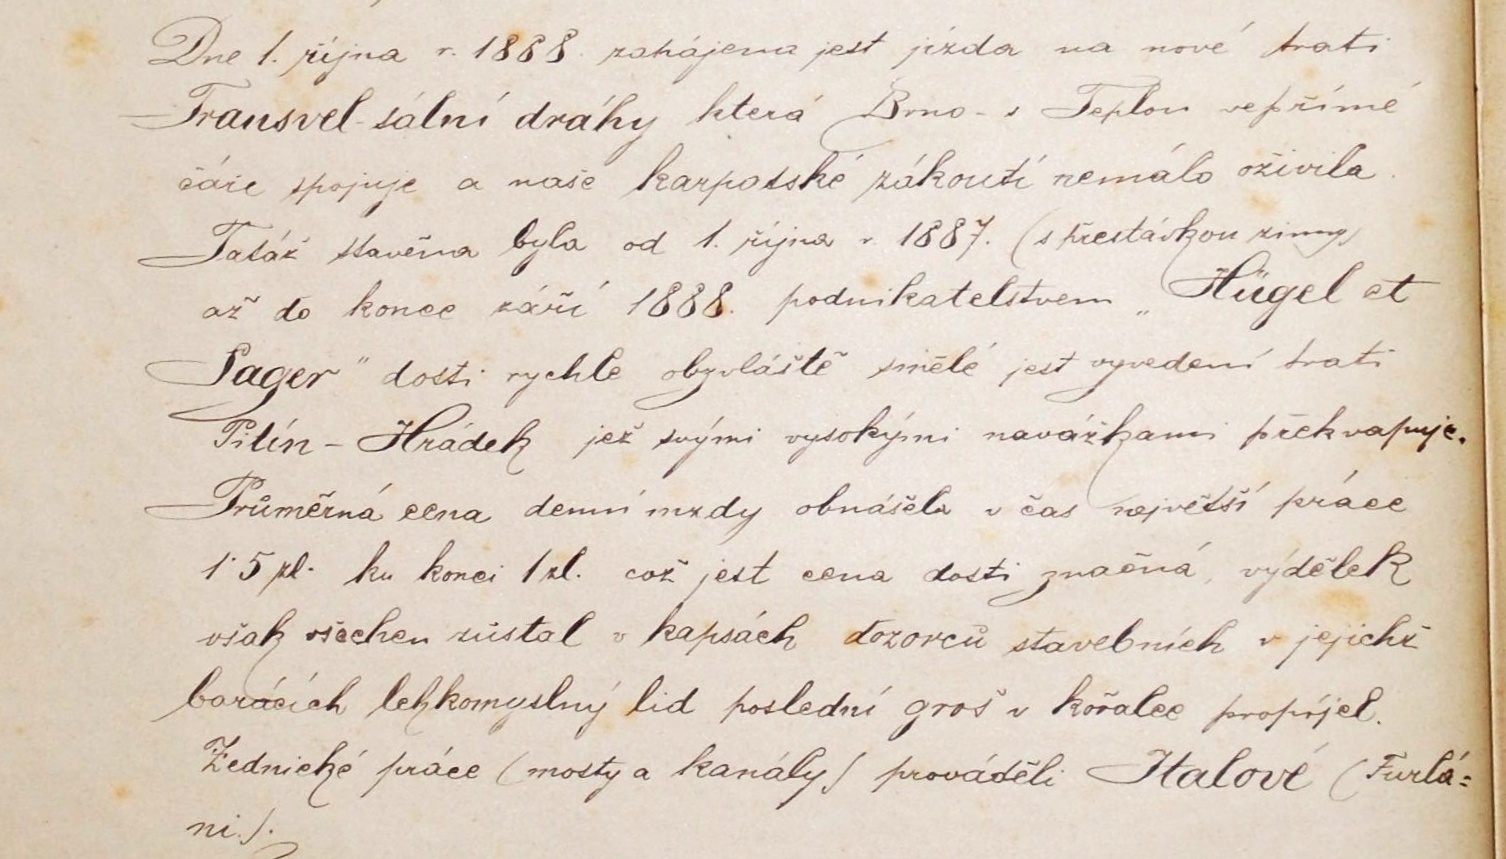 Dne 1. října r. 1888. zahájena jest jízda na nové trati
Transvel-sální dráhy která Brno - s Teplou vepřímé
čáře spojuje a naše karpatské zákoutí nemálo oživila.
Tatáž stavěna byla od 1. října r. 1887. (s přestávkou zimny)
až do konce září 1888. podnikatelstvem „Hügel et
Sager" dosti rychle obzvláště smělé jest vyvedení trati
Pitín - Hrádek jež svými vysokými navážkami překvapuje.
Průměrná cena denní mzdy obnášela v čas největší práce
1·5 zl. ku konci 1 zl. což jest cena dosti značná, výdělek
však všechen zůstal v kapsách dozorců stavebních v jejichž
barácích lehkomyslný lid poslední groš v kořalce propíjel.
Zednické práce (mosty a kanály) prováděli Italové (Furlá=
ni.).